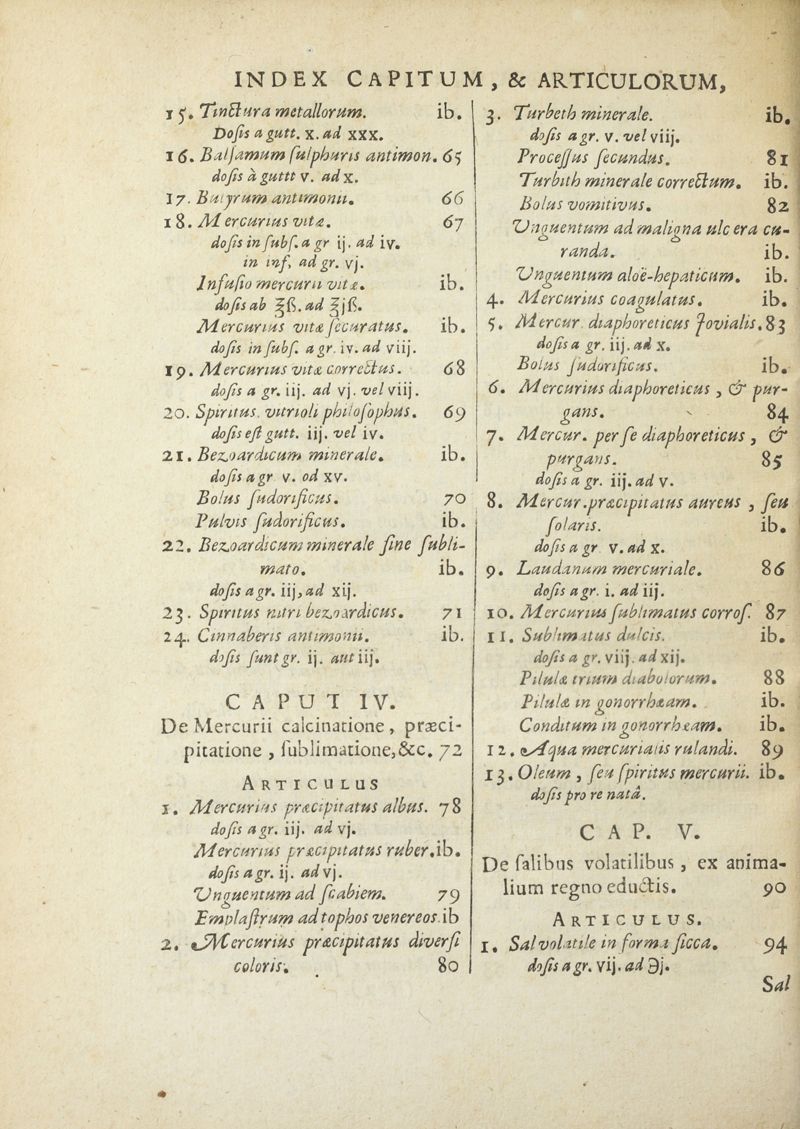 INDEX CAPITUM, & ARTICULORUM,
15. Tinctura metallorum. ib.
Dosis a gutt. x. ad xxx.
16. Balsamum sulphuris antimon. 65
dosis à guttt v. ad x.
17. Butyrum antimonii. 66
18. Mercurius vitæ. 67
dosis in subs. a gr ij. ad iv.
in inf, ad gr. vj.
Infusio mercurii vitæ. ib.
dosis ab ℥ß. ad ℥jß.
Mercurius vitæ securatus. ib.
dosis in subs. a gr. iv. ad viij.
19. Mercurius vitæ correctus. 68
dosis a gr. iij. ad vj. vel viij.
20. Spiritus vitrioli philosophus. 69
dosis est gutt. iij. vel iv.
21. Bezoardicum minerale. ib.
dosis a gr v. od xv.
Bolus sudorificus. 70
Pulvis sudorificus. ib.
22. Bezoardicum minerale sine subli-
mato. ib.
dosis a gr. iij, ad xij.
23. Spiritus nitri bezoardicus. 71
24. Cinnaberis antimonii. ib.
dosis sunt gr. ij. aut iij.
CAPUT IV.
De Mercurii calcinatione, præci-
pitatione, sublimatione, &c. 72
ARTICULUS
1. Mercurius præcipitatus albus. 78
dosis a gr. iij. ad vj.
Mercurius præcipitatus ruber. ib.
dosis a gr. ij. ad vj.
Vnguentum ad scabiem. 79
Emplastrum ad tophos venereos. ib
2. Mercurius præcipitatus diversi
coloris. 80
3. Turbeth minerale. ib.
dosis a gr. v. vel viij.
Processus secundus. 81
Turbith minerale correctum. ib.
Bolus vomitivus. 82
Vnguentum ad maligna ulcera cu-
randa. ib.
Vnguentum aloë-hepaticum. ib.
4. Mercurius coagulatus. ib.
5. Mercur. diaphoreticus Jovialis. 83
dosis a gr. iij. ad x.
Bolus sudorificus. ib.
6. Mercurius diaphoreticus, & pur-
gans. 84
7. Mercur. per se diaphoreticus, &
purgans. 85
dosis a gr. iij. ad v.
8. Mercur. præcipitatus aureus, seu
solaris. ib.
dosis a gr v. ad x.
9. Laudanum mercuriale. 86
dosis a gr. i. ad iij.
10. Mercurius sublimatus corros. 87
11. Sublimatus dulcis. ib.
dosis a gr. viij. ad xij.
Pilulæ trium diabolorum. 88
Pilulæ in gonorrhæam. ib.
Conditum in gonorrhæam. ib.
12. Aqua mercurialis rulandi. 89
13. Oleum, seu spiritus mercurii. ib.
dosis pro re natâ.
CAP. V.
De salibus volatilibus, ex anima-
lium regno eductis. 90
ARTICULUS.
1. Sal volatile in forma sicca. 94
dosis a gr. vij. ad ℈j.
Sal